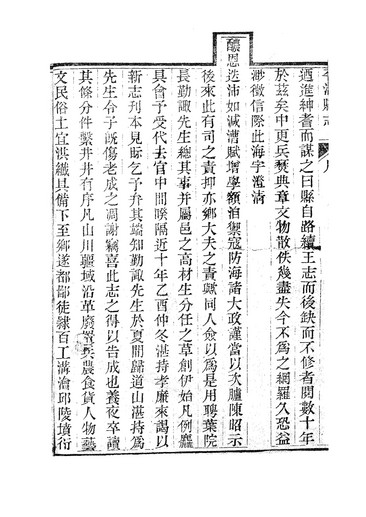 迺進紳耆而謀之曰縣自路續王志而後缺而不修者閱數十年
於茲矣中更兵燹典章文物散佚幾盡失今不為之網羅久恐益
渺徵信際此海宇澄清
醲恩迭沛如減漕賦增學額洎禦寇防海諸大政謹當以次臚陳昭示
後來此有司之責抑亦鄉大夫之責歟同人僉以為是用聘葉院
長勤諏先生總其事并屬邑之高材生分任之草創伊始凡例麤
具會予受代去官中間暌隔近十年乙酉仲冬湛持孝廉來謁以
新志刊本見貽乞予弁其端知勤諏先生於夏間歸道山湛持為
先生令子既傷老成之凋謝竊喜此志之得以告成也養夜卒讀
其條分件繫井井有序凡山川疆域沿革廢置兵農食貨人物藝
文民俗土宜洪纖具備下至鄉遂都鄙徒隸百工溝澮邱陵墳衍